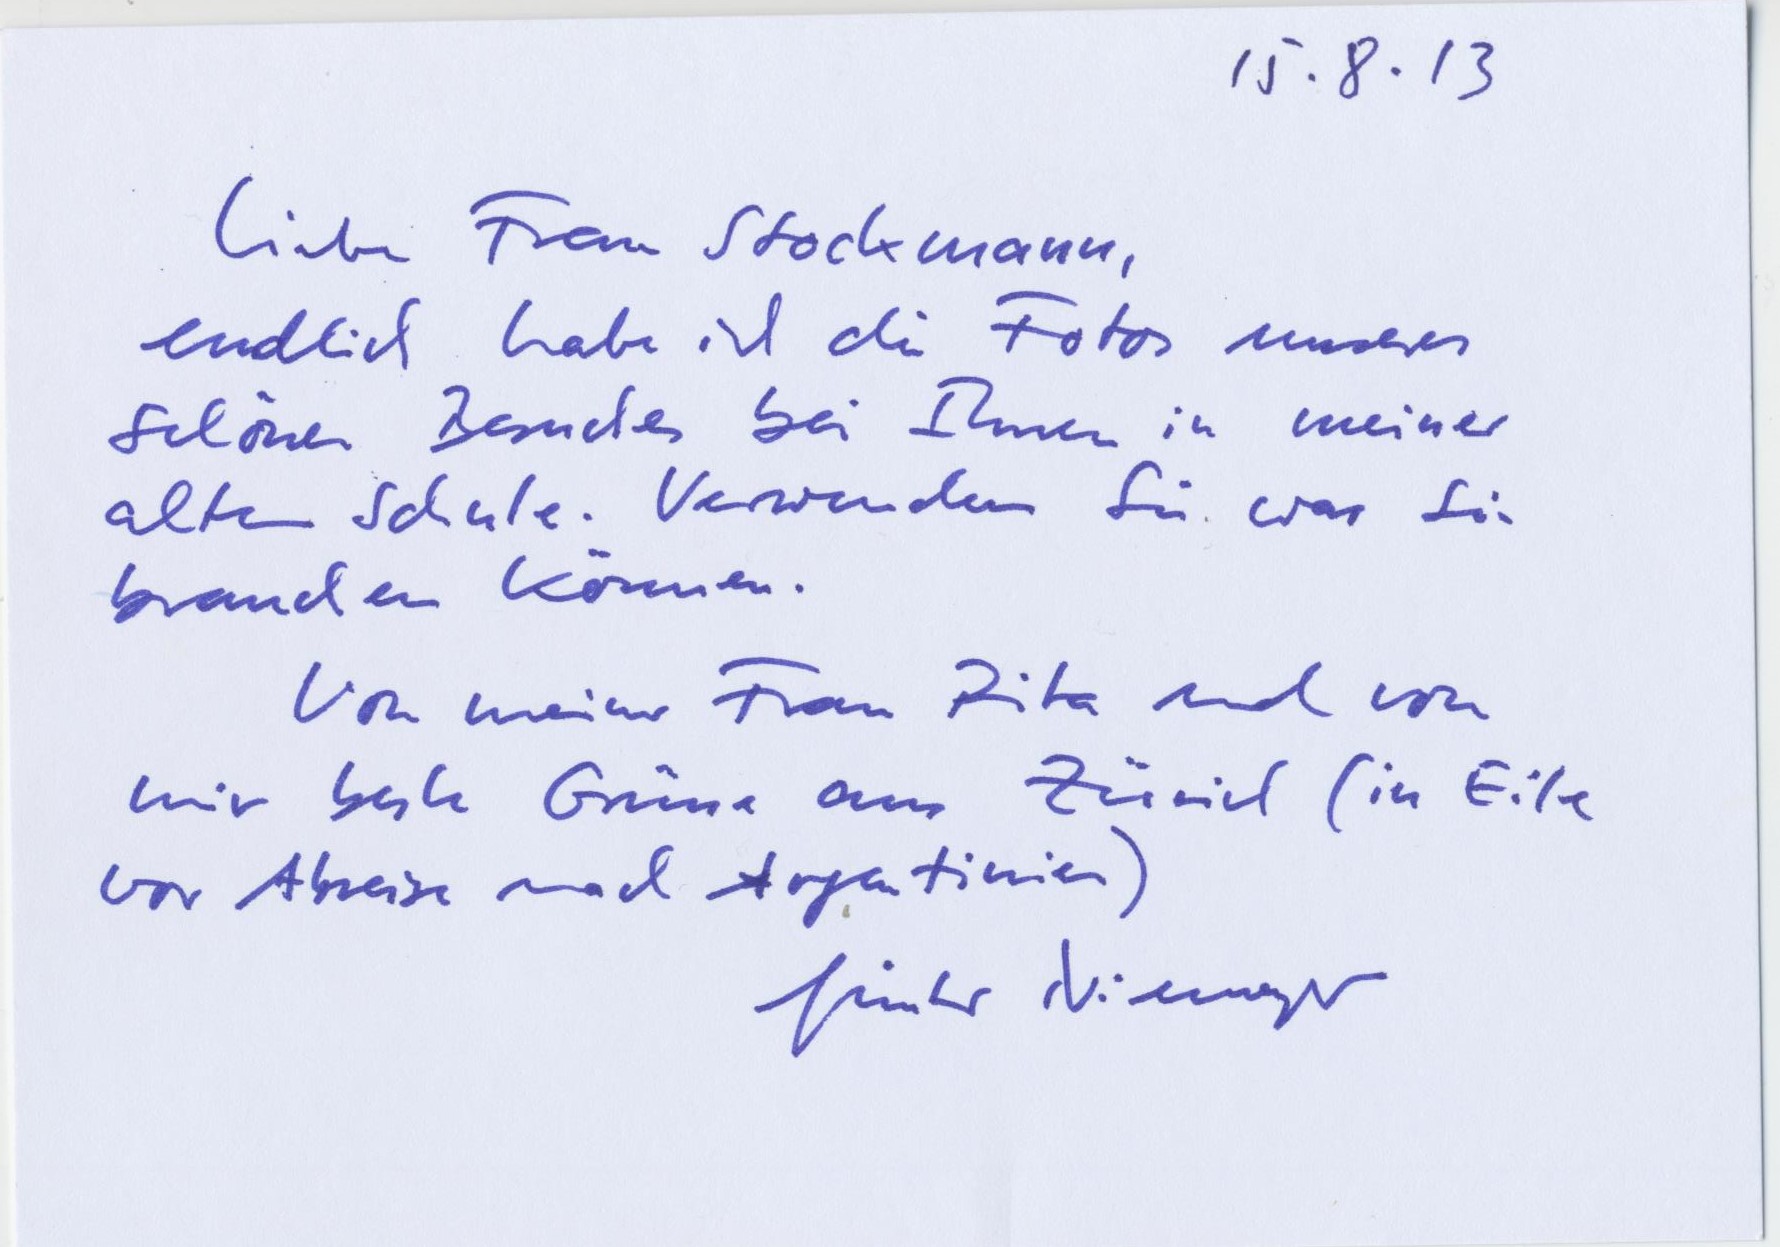 15.8.13
Liebe Frau Stockmann,
endlich habe ich die Fotos unseres
schönen Besuches bei Ihnen in meiner
alten Schule. Verwenden Sie was Sie
brauchen können.
Von meiner Frau Rita und von
mir beste Grüsse aus Zürich (in Eile
vor Abreise nach Argentinien)
Günter Niemeyer